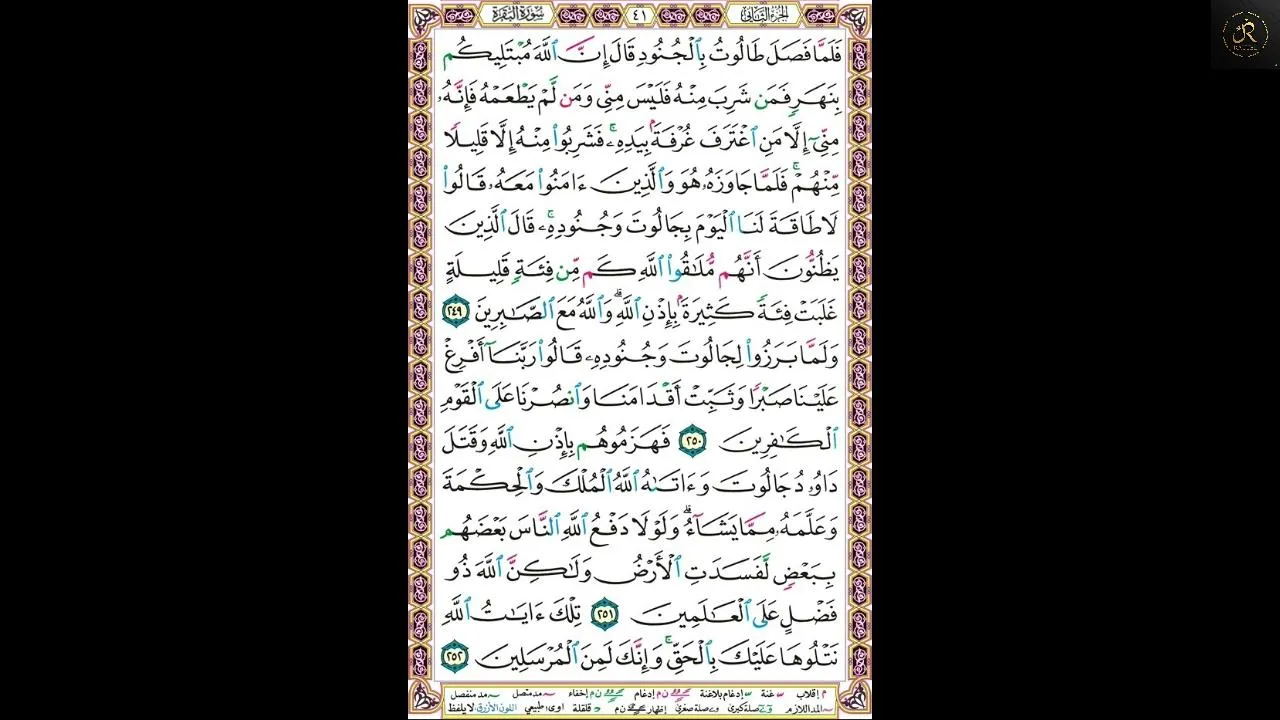 الجزء الثاني
٤١
سورة البقرة
فَلَمَّا فَصَلَ طَالُوتُ بِٱلْجُنُودِ قَالَ إِنَّ ٱللَّهَ مُبْتَلِيكُم
بِنَهَرٍ فَمَن شَرِبَ مِنْهُ فَلَيْسَ مِنِّى وَمَن لَّمْ يَطْعَمْهُ فَإِنَّهُۥ
مِنِّىٓ إِلَّا مَنِ ٱغْتَرَفَ غُرْفَةَۢ بِيَدِهِۦ ۚ فَشَرِبُوا۟ مِنْهُ إِلَّا قَلِيلًا
مِّنْهُمْ ۚ فَلَمَّا جَاوَزَهُۥ هُوَ وَٱلَّذِينَ ءَامَنُوا۟ مَعَهُۥ قَالُوا۟
لَا طَاقَةَ لَنَا ٱلْيَوْمَ بِجَالُوتَ وَجُنُودِهِۦ ۚ قَالَ ٱلَّذِينَ
يَظُنُّونَ أَنَّهُم مُّلَٰقُوا۟ ٱللَّهِ كَم مِّن فِئَةٍ قَلِيلَةٍ
غَلَبَتْ فِئَةً كَثِيرَةَۢ بِإِذْنِ ٱللَّهِ ۗ وَٱللَّهُ مَعَ ٱلصَّٰبِرِينَ ٢٤٩
وَلَمَّا بَرَزُوا۟ لِجَالُوتَ وَجُنُودِهِۦ قَالُوا۟ رَبَّنَآ أَفْرِغْ
عَلَيْنَا صَبْرًا وَثَبِّتْ أَقْدَامَنَا وَٱنصُرْنَا عَلَى ٱلْقَوْمِ
ٱلْكَٰفِرِينَ ٢٥٠ فَهَزَمُوهُم بِإِذْنِ ٱللَّهِ وَقَتَلَ
دَاوُۥدُ جَالُوتَ وَءَاتَىٰهُ ٱللَّهُ ٱلْمُلْكَ وَٱلْحِكْمَةَ
وَعَلَّمَهُۥ مِمَّا يَشَآءُ ۗ وَلَوْلَا دَفْعُ ٱللَّهِ ٱلنَّاسَ بَعْضَهُم
بِبَعْضٍ لَّفَسَدَتِ ٱلْأَرْضُ وَلَٰكِنَّ ٱللَّهَ ذُو
فَضْلٍ عَلَى ٱلْعَٰلَمِينَ ٢٥١ تِلْكَ ءَايَٰتُ ٱللَّهِ
نَتْلُوهَا عَلَيْكَ بِٱلْحَقِّ ۚ وَإِنَّكَ لَمِنَ ٱلْمُرْسَلِينَ ٢٥٢
م إقلاب غنة إدغام بلاغنة ن م إدغام ن م إخفاء مد متصل مد منفصل
المد اللازم صلة كبرى صلة صغرى إظهار ن م قلقلة اوى: طبيعي اللون الأزرق لا يلفظ